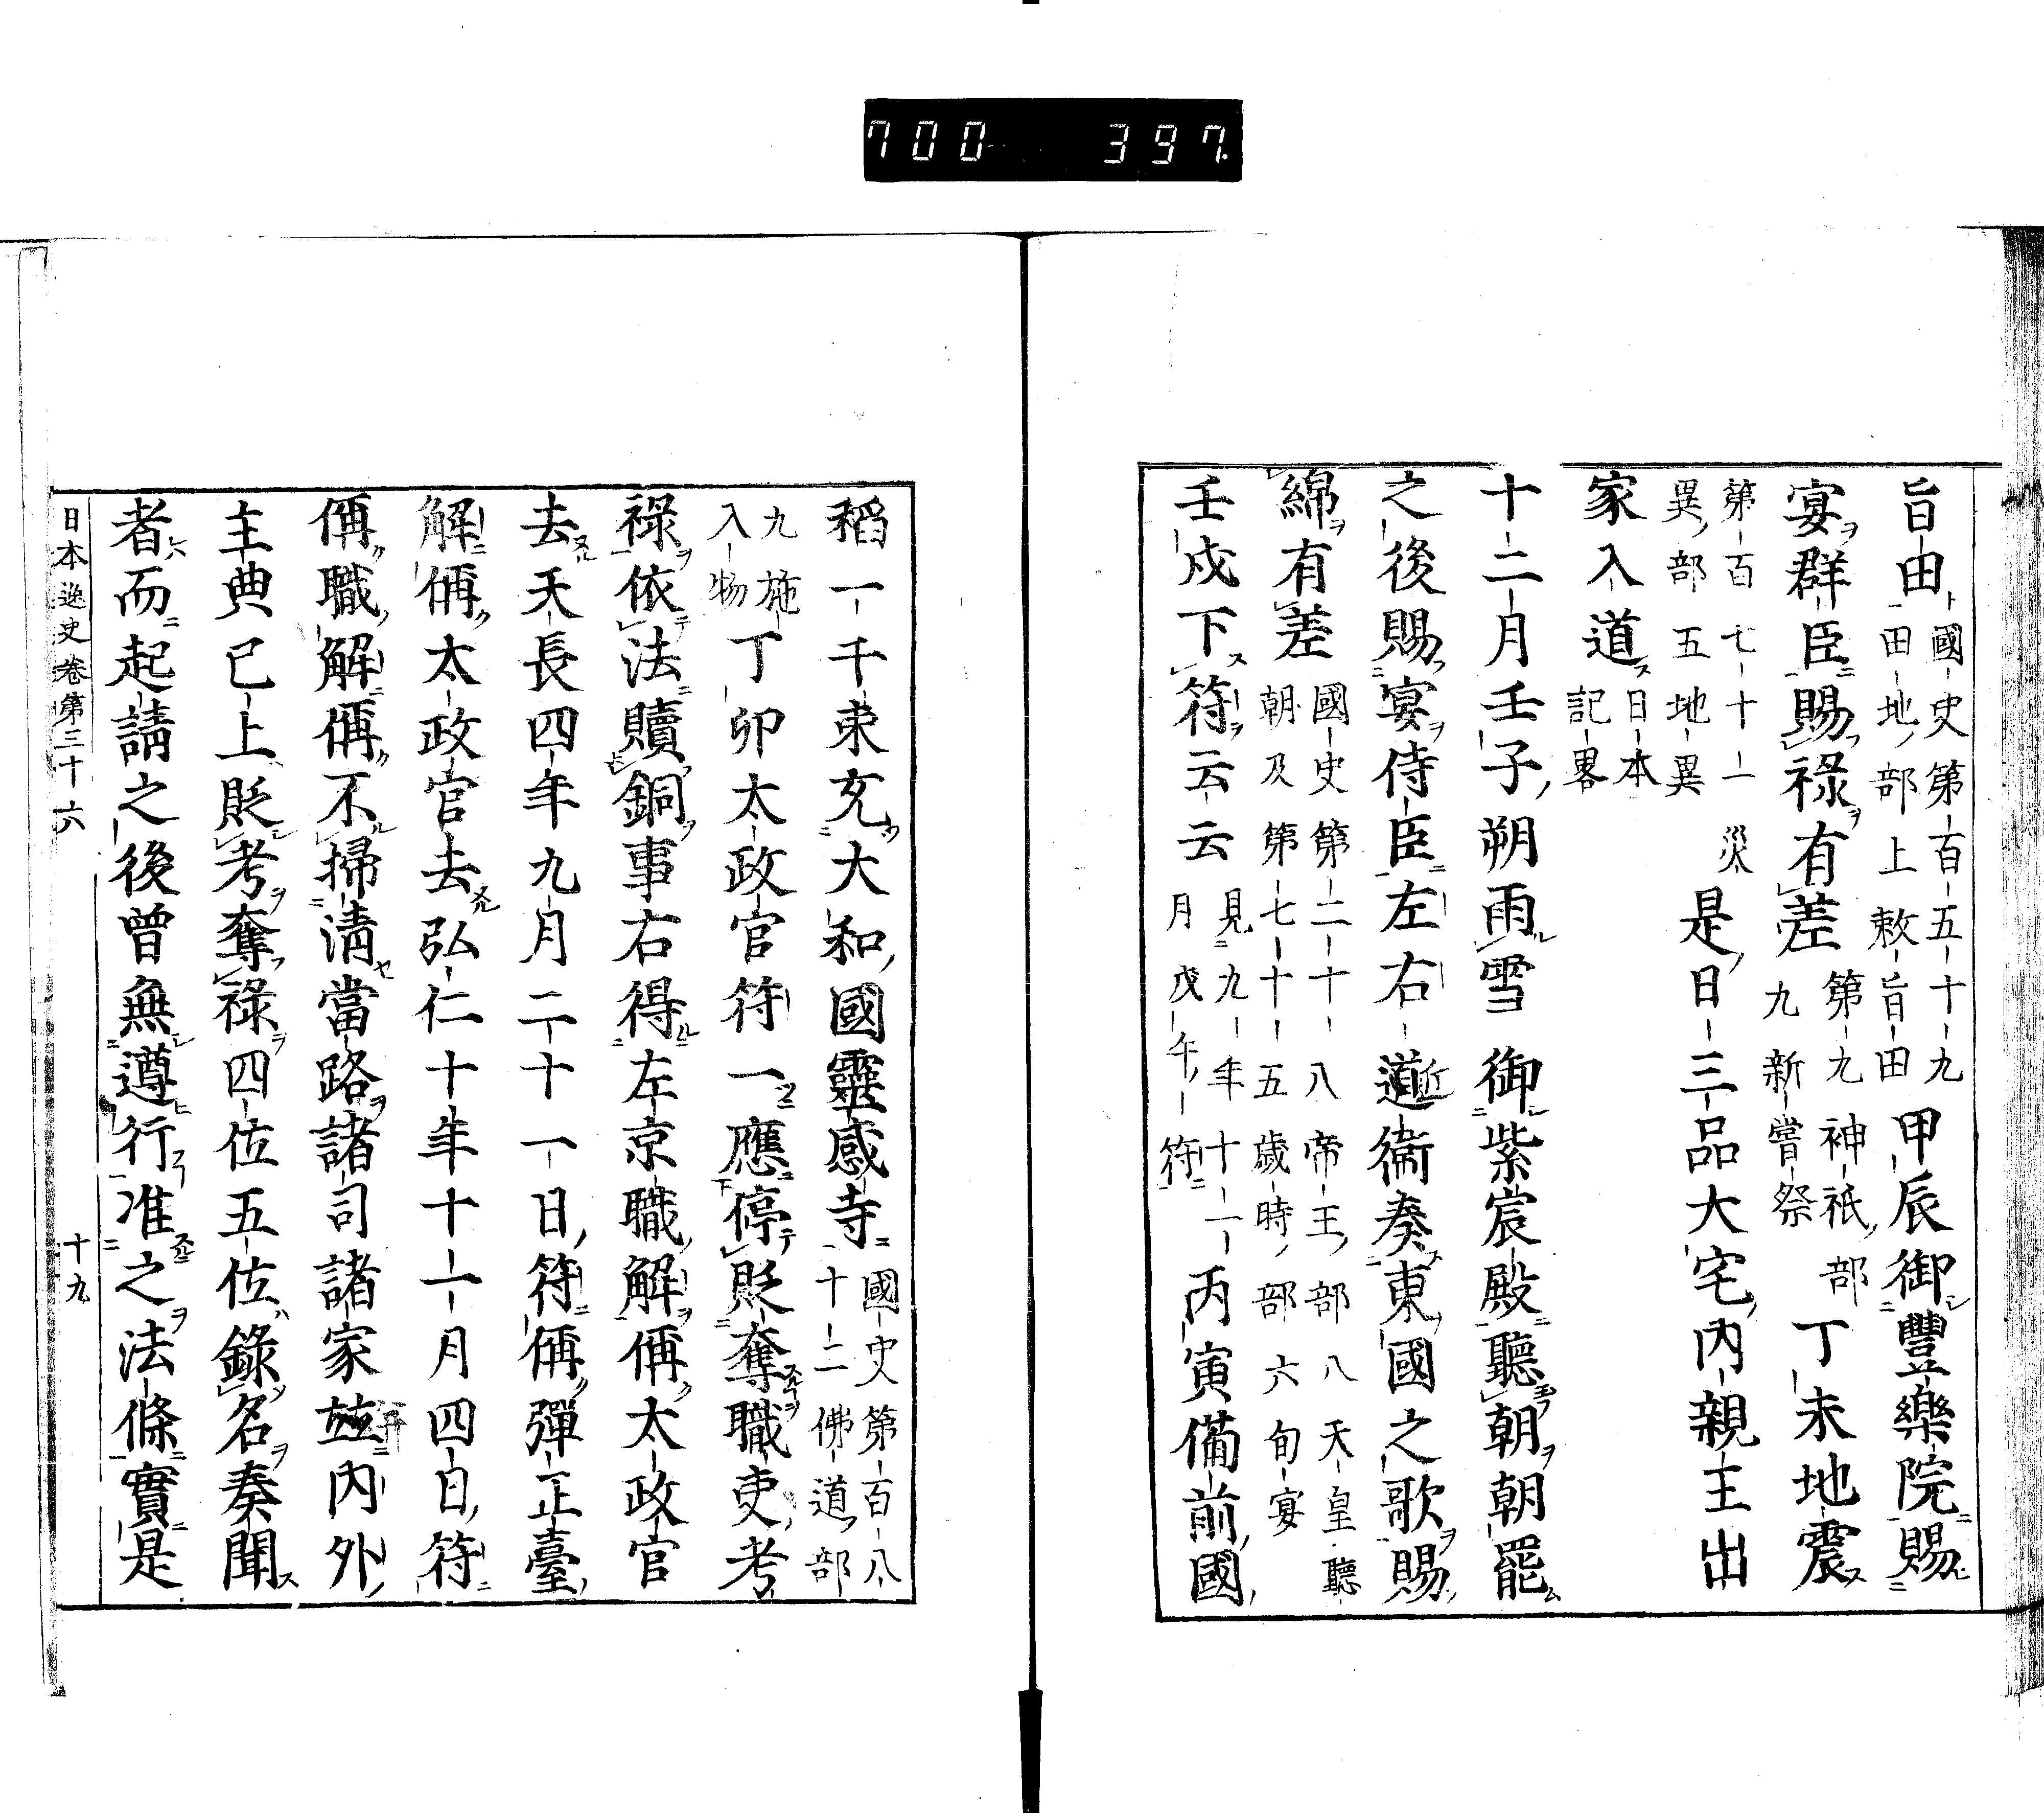 700 397
旨田國史第百五十九田地部上敕旨田甲辰御豐樂院賜
宴群臣賜祿有差第九神祇部九新嘗祭丁未地震
第百七十一災異部五地異是日三品大宅內親王出
家入道日本記畧
十二月壬子朔雨雪御紫宸殿聽朝朝罷
之後賜宴侍臣左右道近衞奏東國之歌賜
綿有差國史第二十八帝王部八天皇聽朝及第七十五歲時部六旬宴
壬戌下符云云見九年十一月戊午符丙寅備前國
稻一千束充大和國靈感寺國史第百八十二佛道部
九施入物丁卯太政官符一應停貶奪職吏考
祿依法贖銅事右得左京職解偁太政官
去天長四年九月二十一日符偁彈正臺
解偁太政官去弘仁十年十一月四日符
偁職解偁不掃淸當路諸司諸家並內外
主典已上貶考奪祿四位五位錄名奏聞
者而起請之後曾無遵行准之法條實是
日本逸史卷第三十六 十九